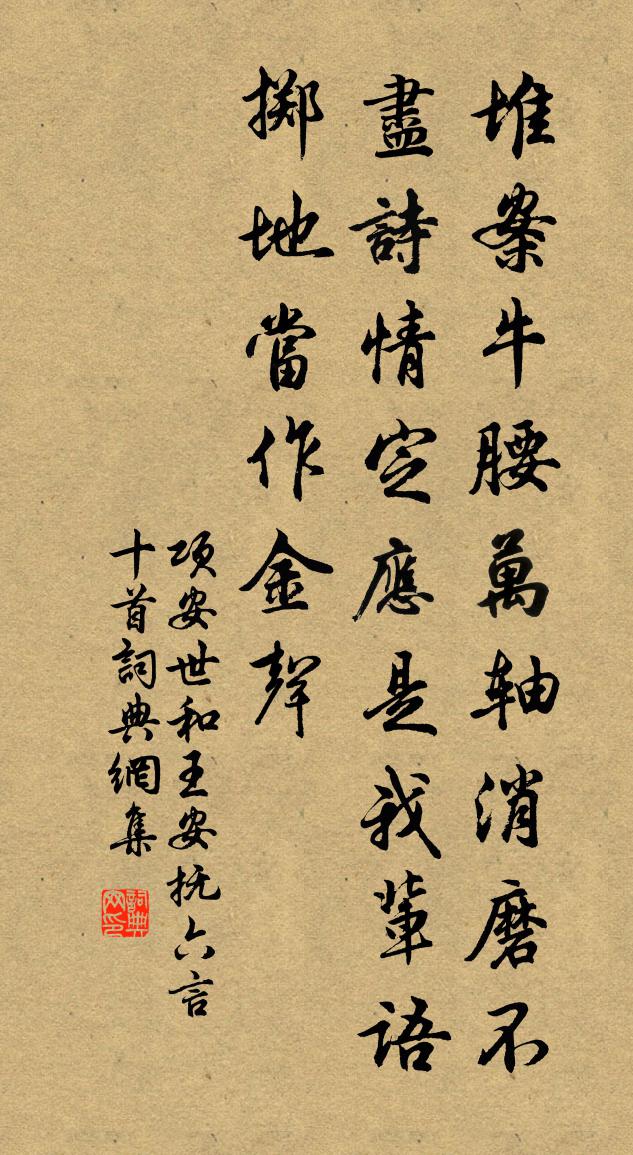 堆案牛腰萬轴消磨不
盡詩情定應是我輩語
掷地當作金聲
项安世和王安抚六言
十首詞典網集
詞典网印